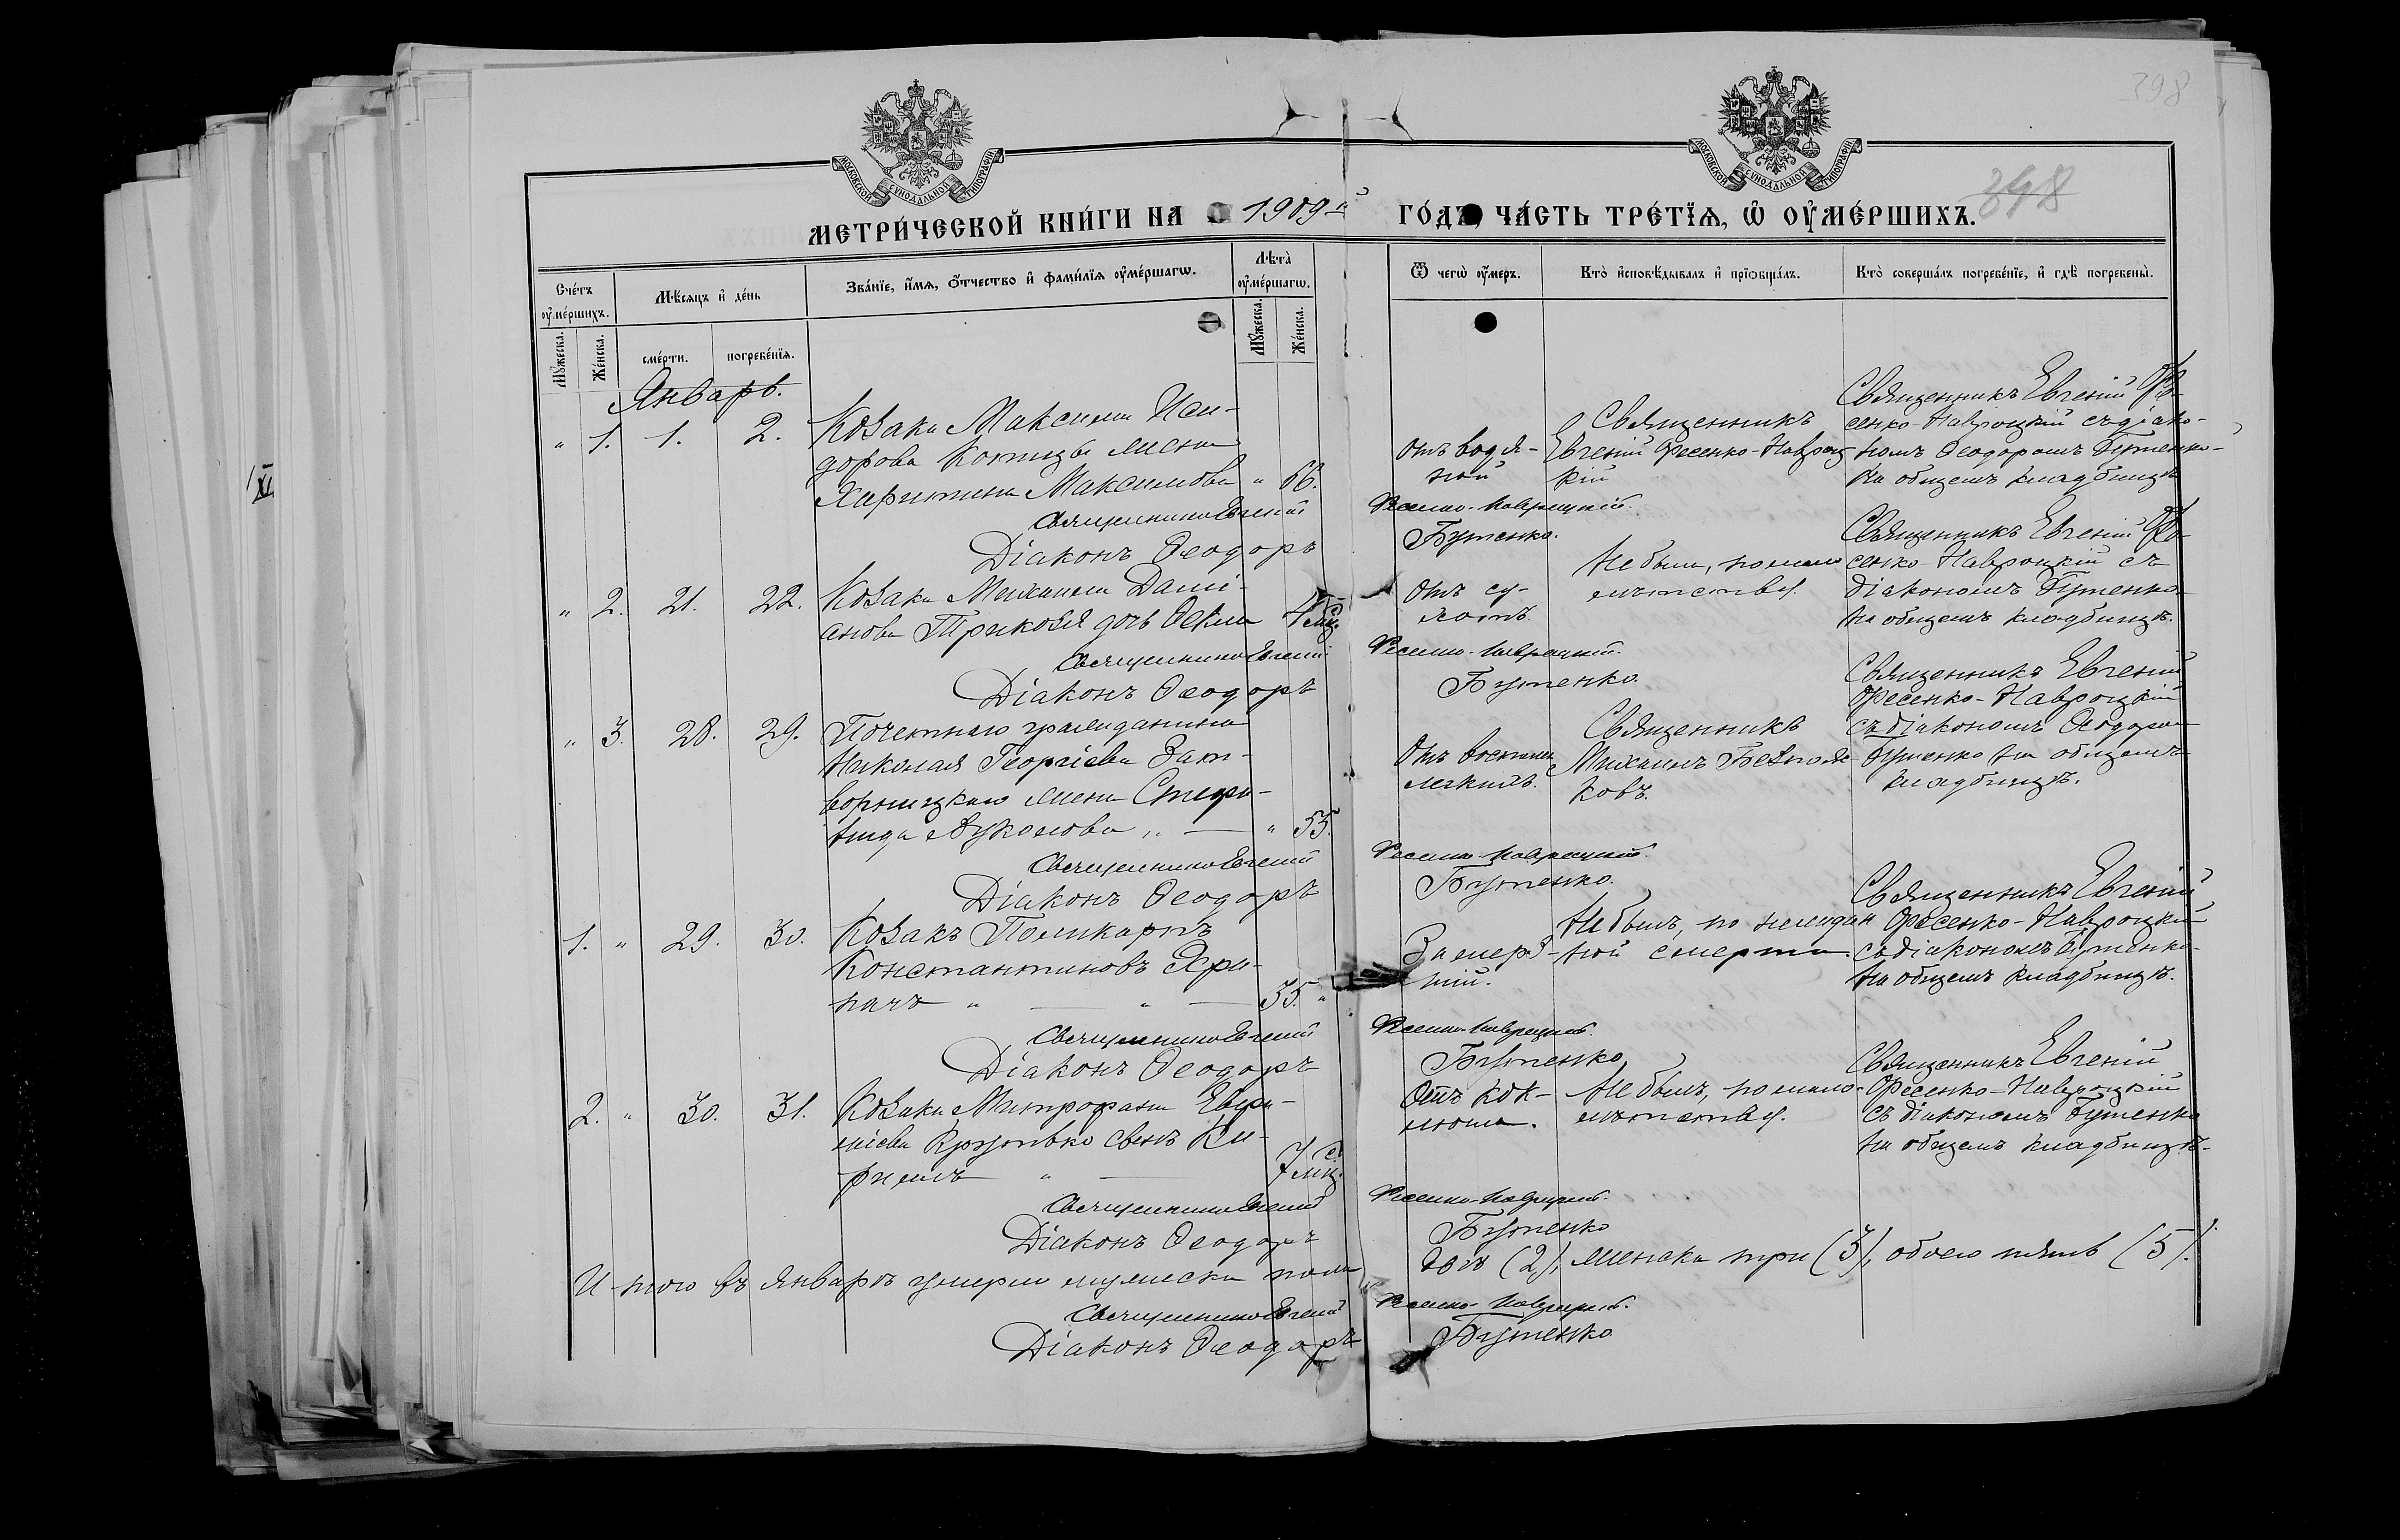 398
398
МОСКОВСКОЙ СУНОДАЛЬНОЙ ТИПОГРАФІИ
МОСКОВСКОЙ СУНОДАЛЬНОЙ ТИПОГРАФІИ
МЕТРИ́ЧЕСКОЙ КНИ́ГИ НА 1909й ГО́ДЪ, ЧА́СТЬ ТРЕ́ТЇѦ, Ѡ҆ ОУ҆МЕ́РШИХЪ.
Сче́тъ оу҆ме́ршихъ.
Мѣ́сяцъ и҆ де́нь
Зва́нїе, и҆́мѧ, ѻ҆́тчество и҆ фами́лїѧ оу҆ме́ршагѡ.
Лѣ́та̀ оу҆ме́ршагѡ.
Ѿ чегѡ̀ оу҆́меръ.
Кто̀ и҆сповѣ́дывалъ и҆ прїѡбща́лъ.
Кто̀ соверша́лъ погребе́нїе, и҆ гдѣ̀ погребены̀.
Мꙋ́жеска.
Же́нска.
сме́рти.
погребе́нїѧ.
Мꙋ́жеска.
Же́нска.
Январь.
" 1. 1. 2. Козака Максима Иси-
дорова Копицы жена
Харитина Максимова " 66.
Отъ водя-
ной
Священникъ
Евгеній Фесенко-Навроц-
кій
Священникъ Евгеній Фе-
сенко-Навроцкій съ діако-
номъ Ѳеодоромъ Бутенко-
на общемъ кладбищѣ
Священникъ Евгеній Фесенко-Навроцкій.
Діаконъ Ѳеодоръ Бутенко.
" 2. 21. 22. Козака Михаила Даміа-
анова Трикоза дочь Ѳекла 4 мц.
Отъ су-
хотъ.
Не была, по мало-
лѣтству.
Священникъ Евгеній Фе-
сенко-Навроцкій съ
діакономъ Бутенко
на общемъ кладбищѣ.
Священникъ Евгеній Фесенко-Навроцкій.
Діаконъ Ѳеодоръ Бутенко.
" 3. 28. 29. Почетнаго гражданина
Николая Георгіева Зат-
ворницкаго жена Стефа-
нида Вуколова " — " 55.
Отъ воспален.
легкихъ.
Священникъ
Михаилъ
ковъ.
Священникъ Евгеній
Фесенко-Навроцкій
съ діакономъ Ѳеодоромъ
Бутенко на общемъ
кладбищѣ.
Священникъ Евгеній Фесенко-Навроцкій.
Діаконъ Ѳеодоръ Бутенко.
1. " 29. 30. Козакъ Поликарпъ
Константиновъ Хри-
пачъ " — " — 35. "
Замерз-
шій.
Не былъ, по неждан-
ной смерти.
Священникъ Евгеній
Фесенко-Навроцкій
съ діакономъ Бутенко-
на общемъ кладбищѣ.
Священникъ Евгеній Фесенко-Навроцкій.
Діаконъ Ѳеодоръ Бутенко
2. " 30. 31. Козака Митрофана Евфи-
міева Крутько сынъ Ки-
риллъ " — 7 мц.
Отъ кок-
люша.
Не былъ, по мало-
лѣтству.
Священникъ Евгеній
Фесенко-Навроцкій
съ діакономъ Бутенко
на общемъ кладбищѣ.
Священникъ Евгеній Фесенко-Навроцкій.
Діаконъ Ѳеодоръ Бутенко
Итого въ январѣ умерло мужеска пола два (2), женска три (3), обоего пять (5).
Священникъ Евгеній Фесенко-Навроцкій.
Діаконъ Ѳеодоръ Бутенко